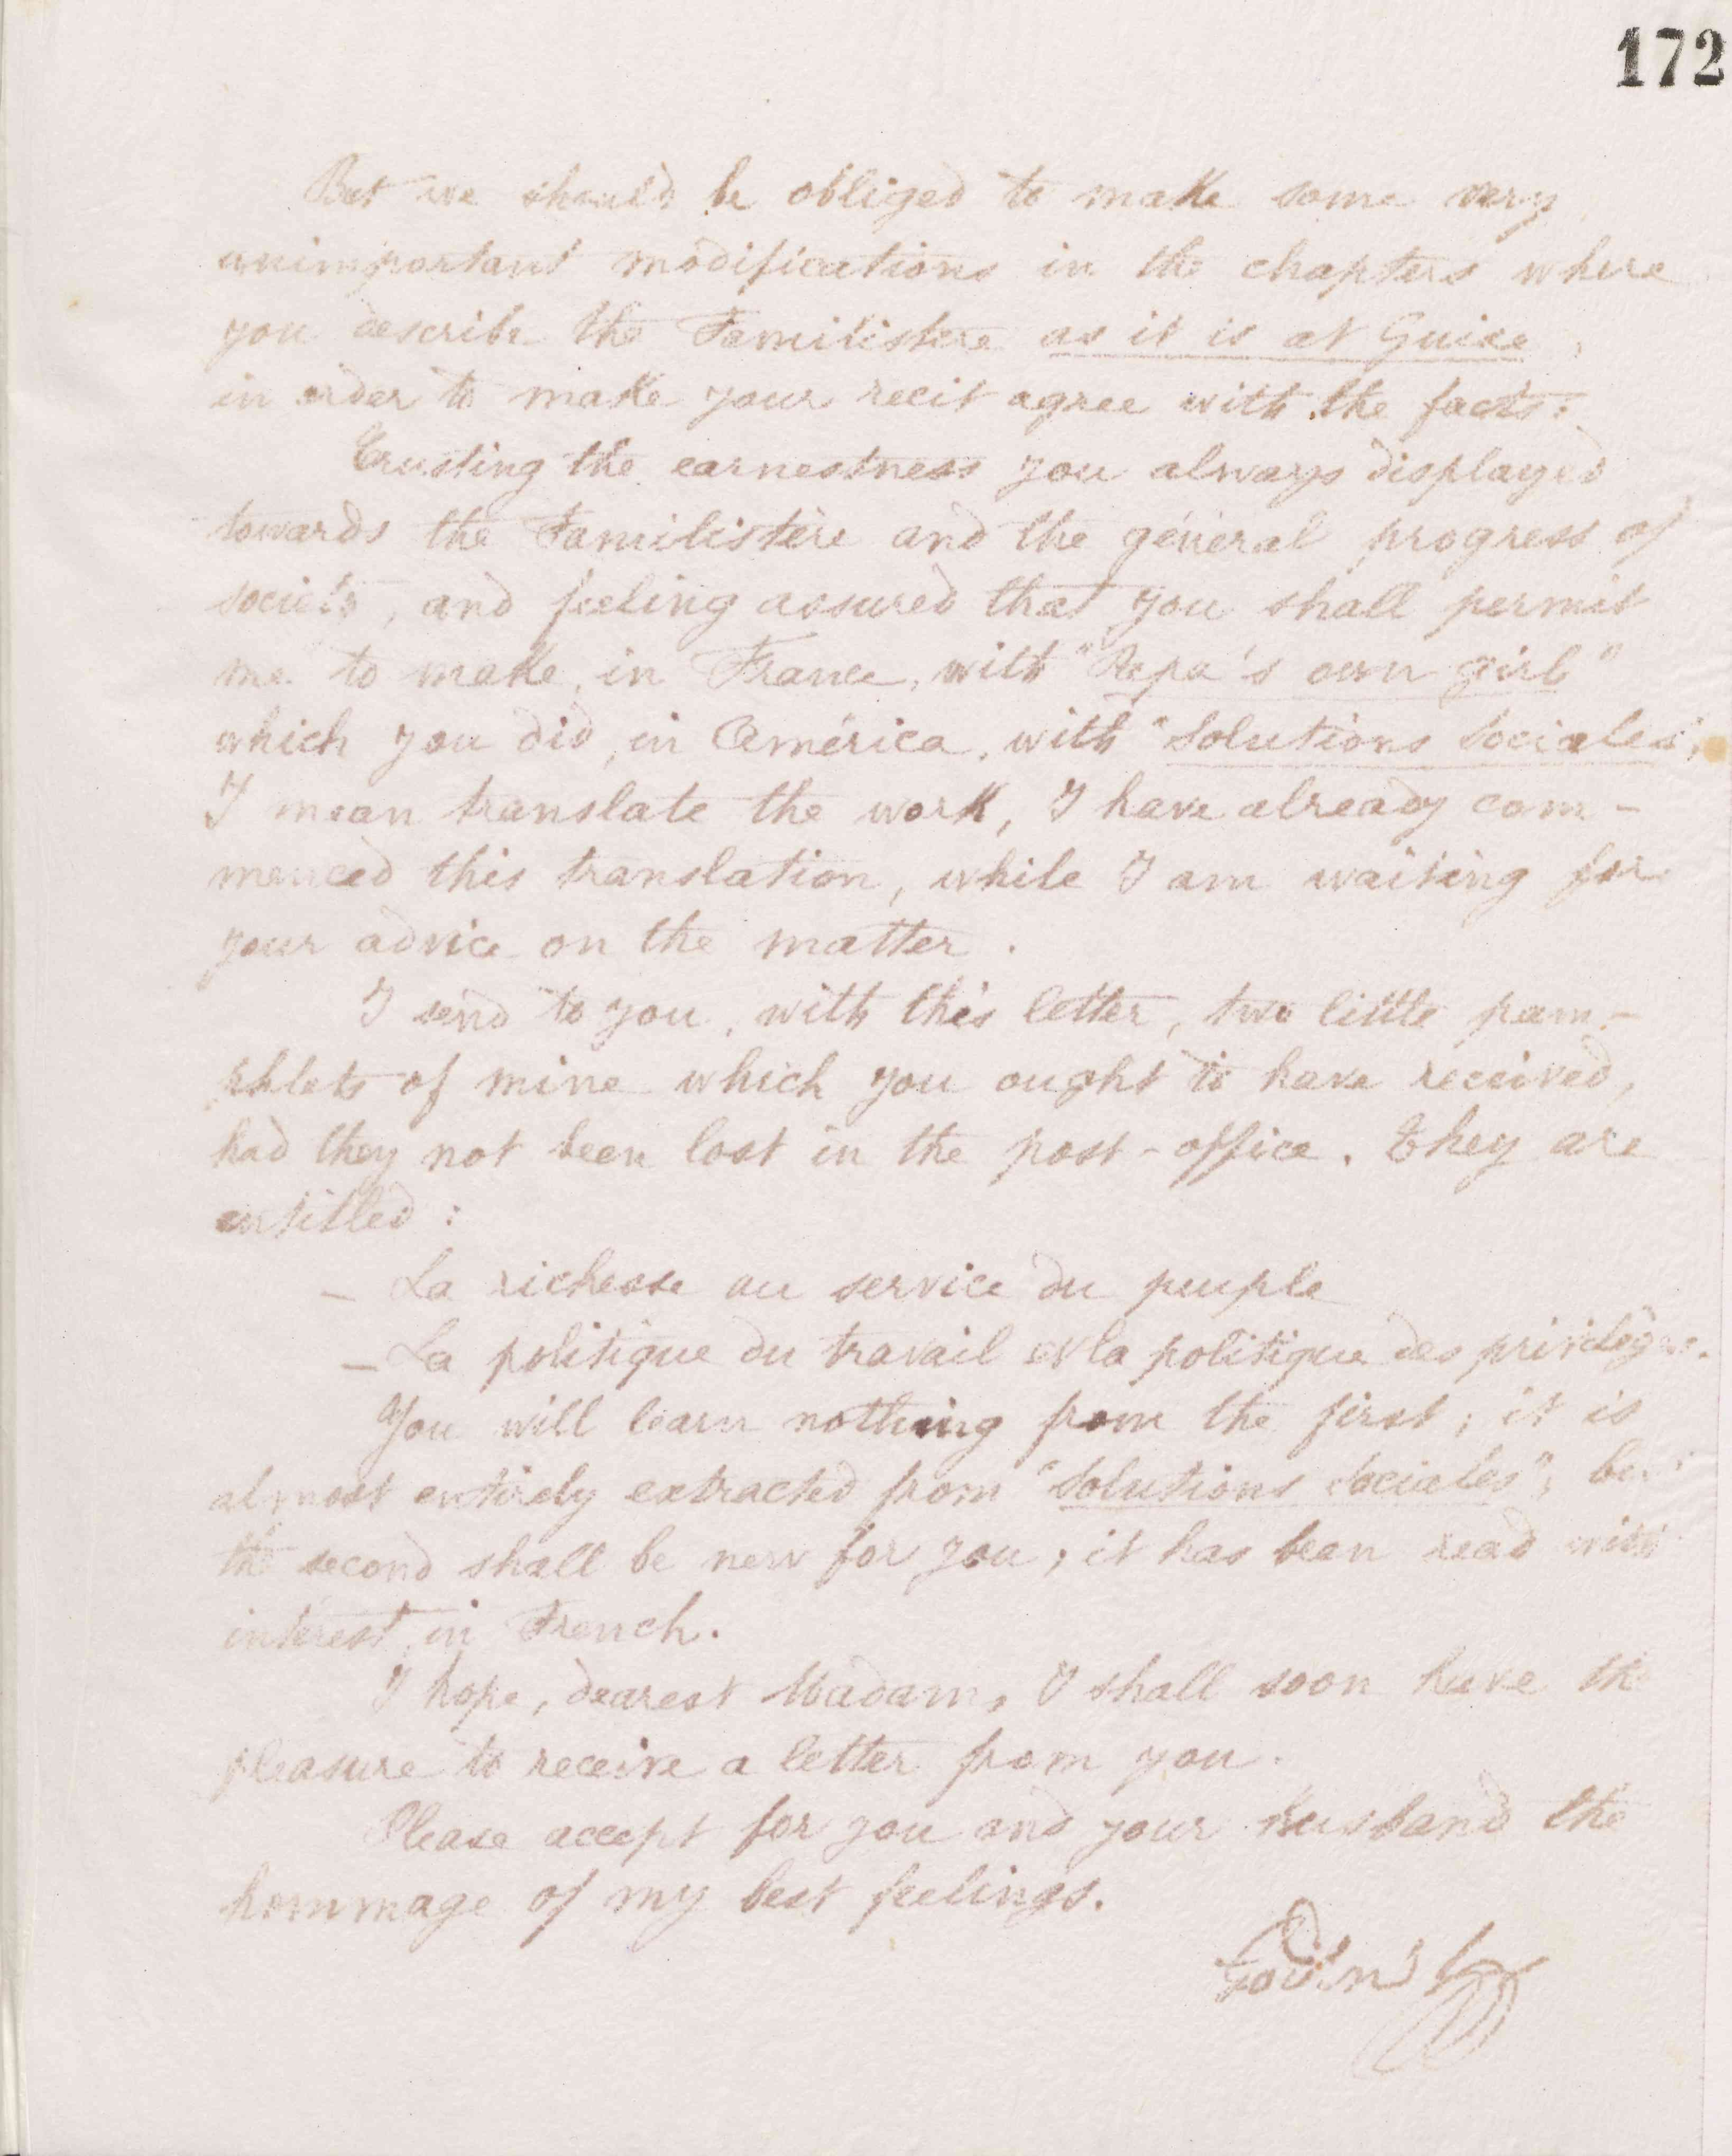 172
But we should be obliged to make some very
unimportant modifications in the chapters where
you describe the Familistere as it is at Guise,
in order to make your recit agree with the facts.
Trusting the earnestness you always displayed
towards the Familistère and the géneral progress of
society, and feeling assured that you shall permit
me to make, in France, with "Papa's own girl"
which you did, in América, with "Solutions Sociales",
I mean translate the work, I have already com-
menced this translation, while I am waiting for
your advice on the matter.
I send to you, with this letter, two little pam-
phlets of mine which you ought to have received,
had they not been lost in the post-office. They are
entitled:
- La richesse au service du peuple
- La politique du travail et la politique des privilèges.
You will learn nothing from the first; it is
almost entirely extracted from "Solutions Sociales"; but
the second shall be new for you; it has been read with
interest in French.
I hope, dearest Madam, I shall soon have the
pleasure to receive a letter from you.
Please accept for you and your husband the
hommage of my best feelings.
Godin